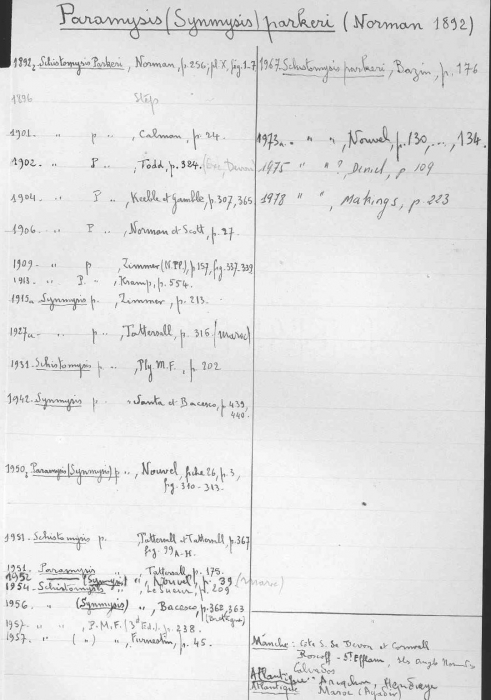 Paramysis (Synmysis) parkeri (Norman 1892)
1892. Schistomysis Parkeri, Norman, p. 256, pl X, fig. 1-7
1896 Step
1901. " p ", Calman, p. 24.
1902 - " P ", Todd, p. 384.
1904 " P ", Keeble et Gamble, p. 307, 365
1906 - " P ", Norman et Scott, p. 27
1909 - " p ", Zimmer (N.Pl.) p 157, fig. 337-339
1913. " P ", Kramp, p. 554.
1915a Synmysis p., Zimmer, p. 213.
1927a " p ", Tattersall, p. 316 (Maroc)
1931. Schistomysis p ", Ply M.F., p. 202
1942. Synmysis p " Santa et Bacesco, p. 439,
440.
1950, Paramysis (Synmysis) p ", Nouvel, fiche 26, p. 3,
fig. 310-313.
1951. Schistomysis p. Tattersall et Tattersall, p. 367
fig. 99 A-H.
1951. Paramysis " Tattersall, p. 175.
1952 " (Synmysis) ", Nouvel, p. 39 (Maroc)
1954 - Schistomysis " Le Sueur, p. 209
1956 - " (Synmysis) ", Bacesco, p. 362, 363
1957 - " " P.M.F. (3d Ed.), p. 238.
1957. " ( " ) ", Furnestin, p. 45.
1967. Schistomysis parkeri, Bazin, p. 176
1973a. " ", Nouvel, p. 130, ..., 134.
1975 " " ?, Diniel, p. 109
1978 " ", Makings, p. 223
Manche : Côte S. de Devon et Cornwall
Roscoff - St Efflam, Iles Anglo Normandes
Calvados
Atlantique Arcachon, Hendaye
Atlantique Maroc (Agadir)